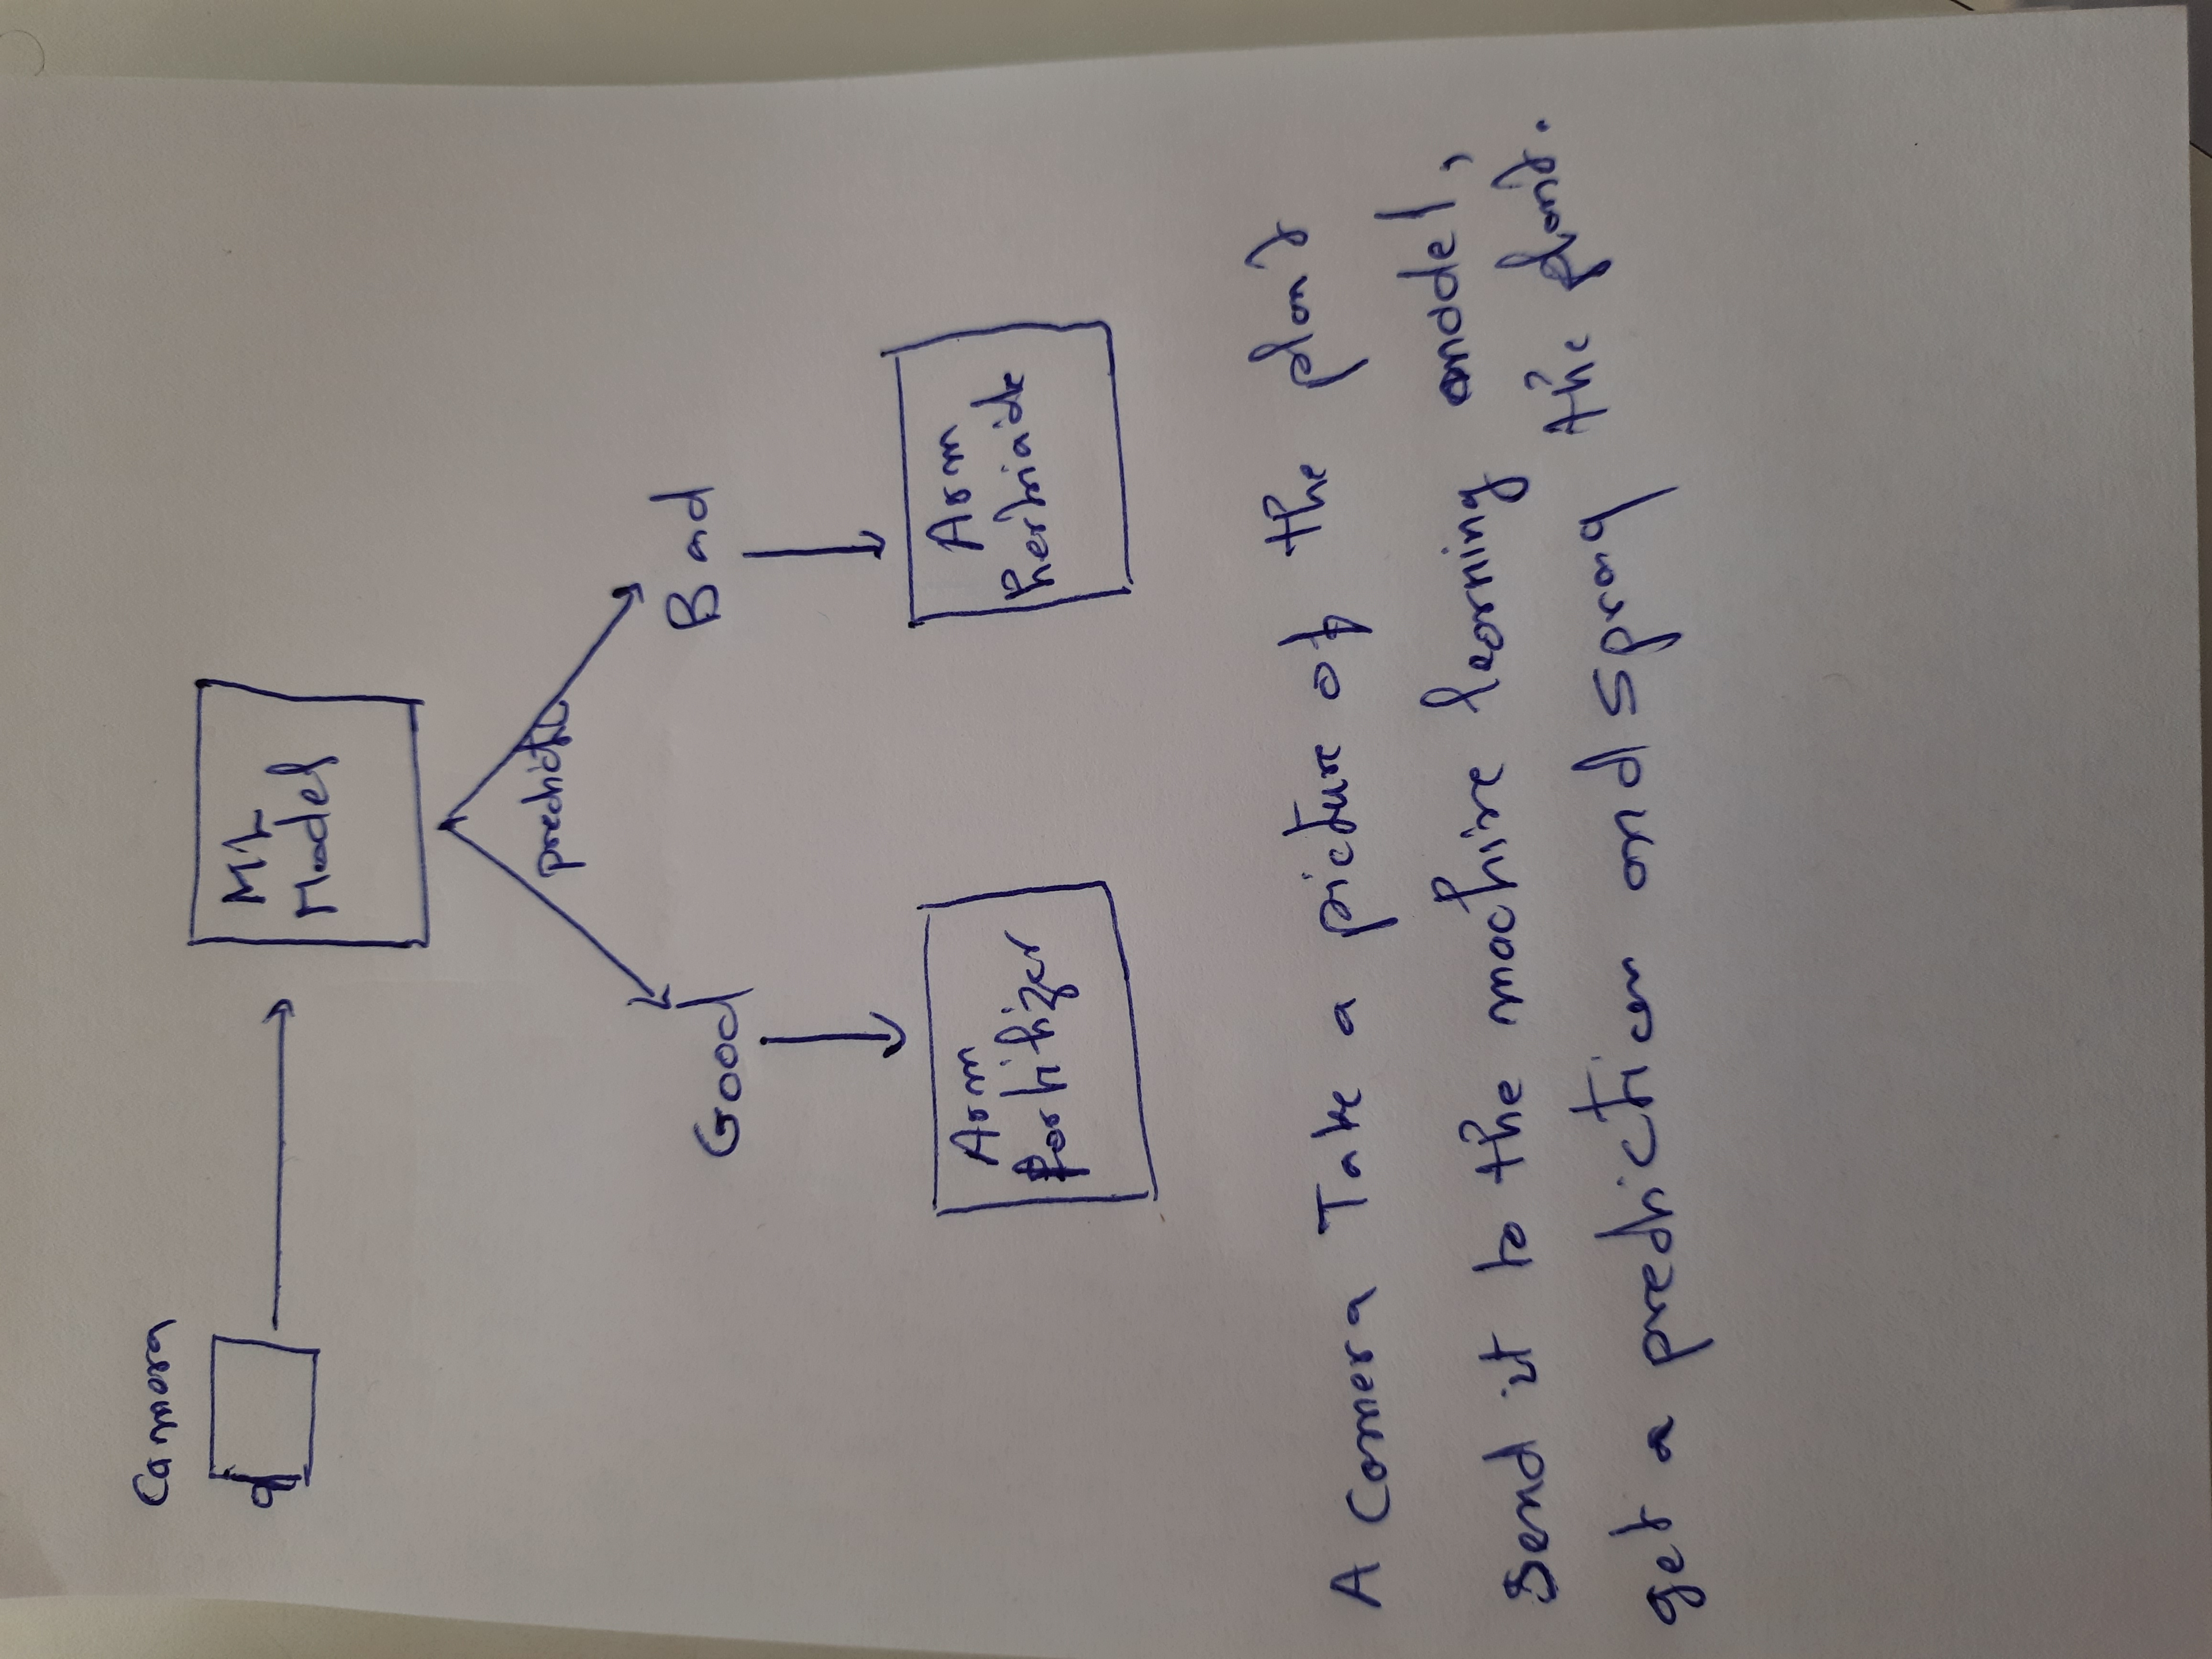 Camera
ML
Model
predict
Good
Bad
Arm
fertilizer
Arm
herbicide
A camera Take a picture of the plant
send it to the machine learning model,
get a prediction and spray the plant.